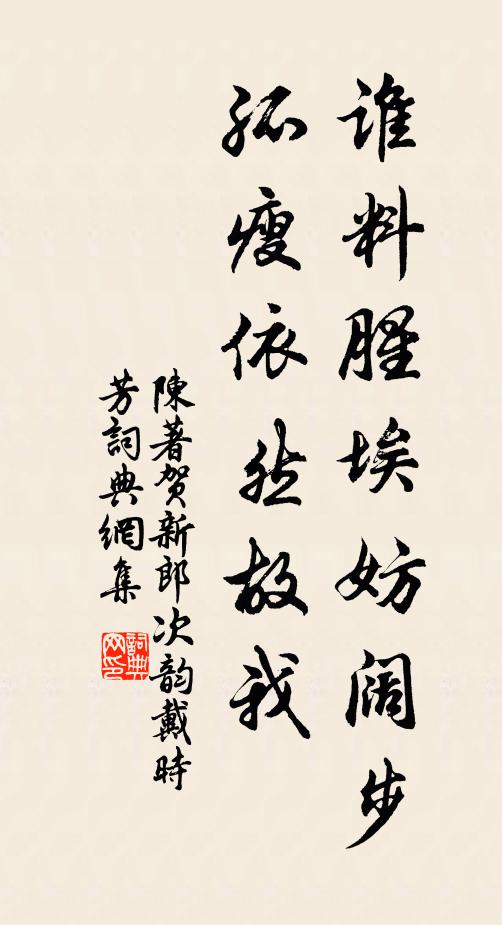 谁料腥埃妨阔步
孤瘦依然故我
陳著賀新郎次韵戴時
芳詞典網集
詞典网印